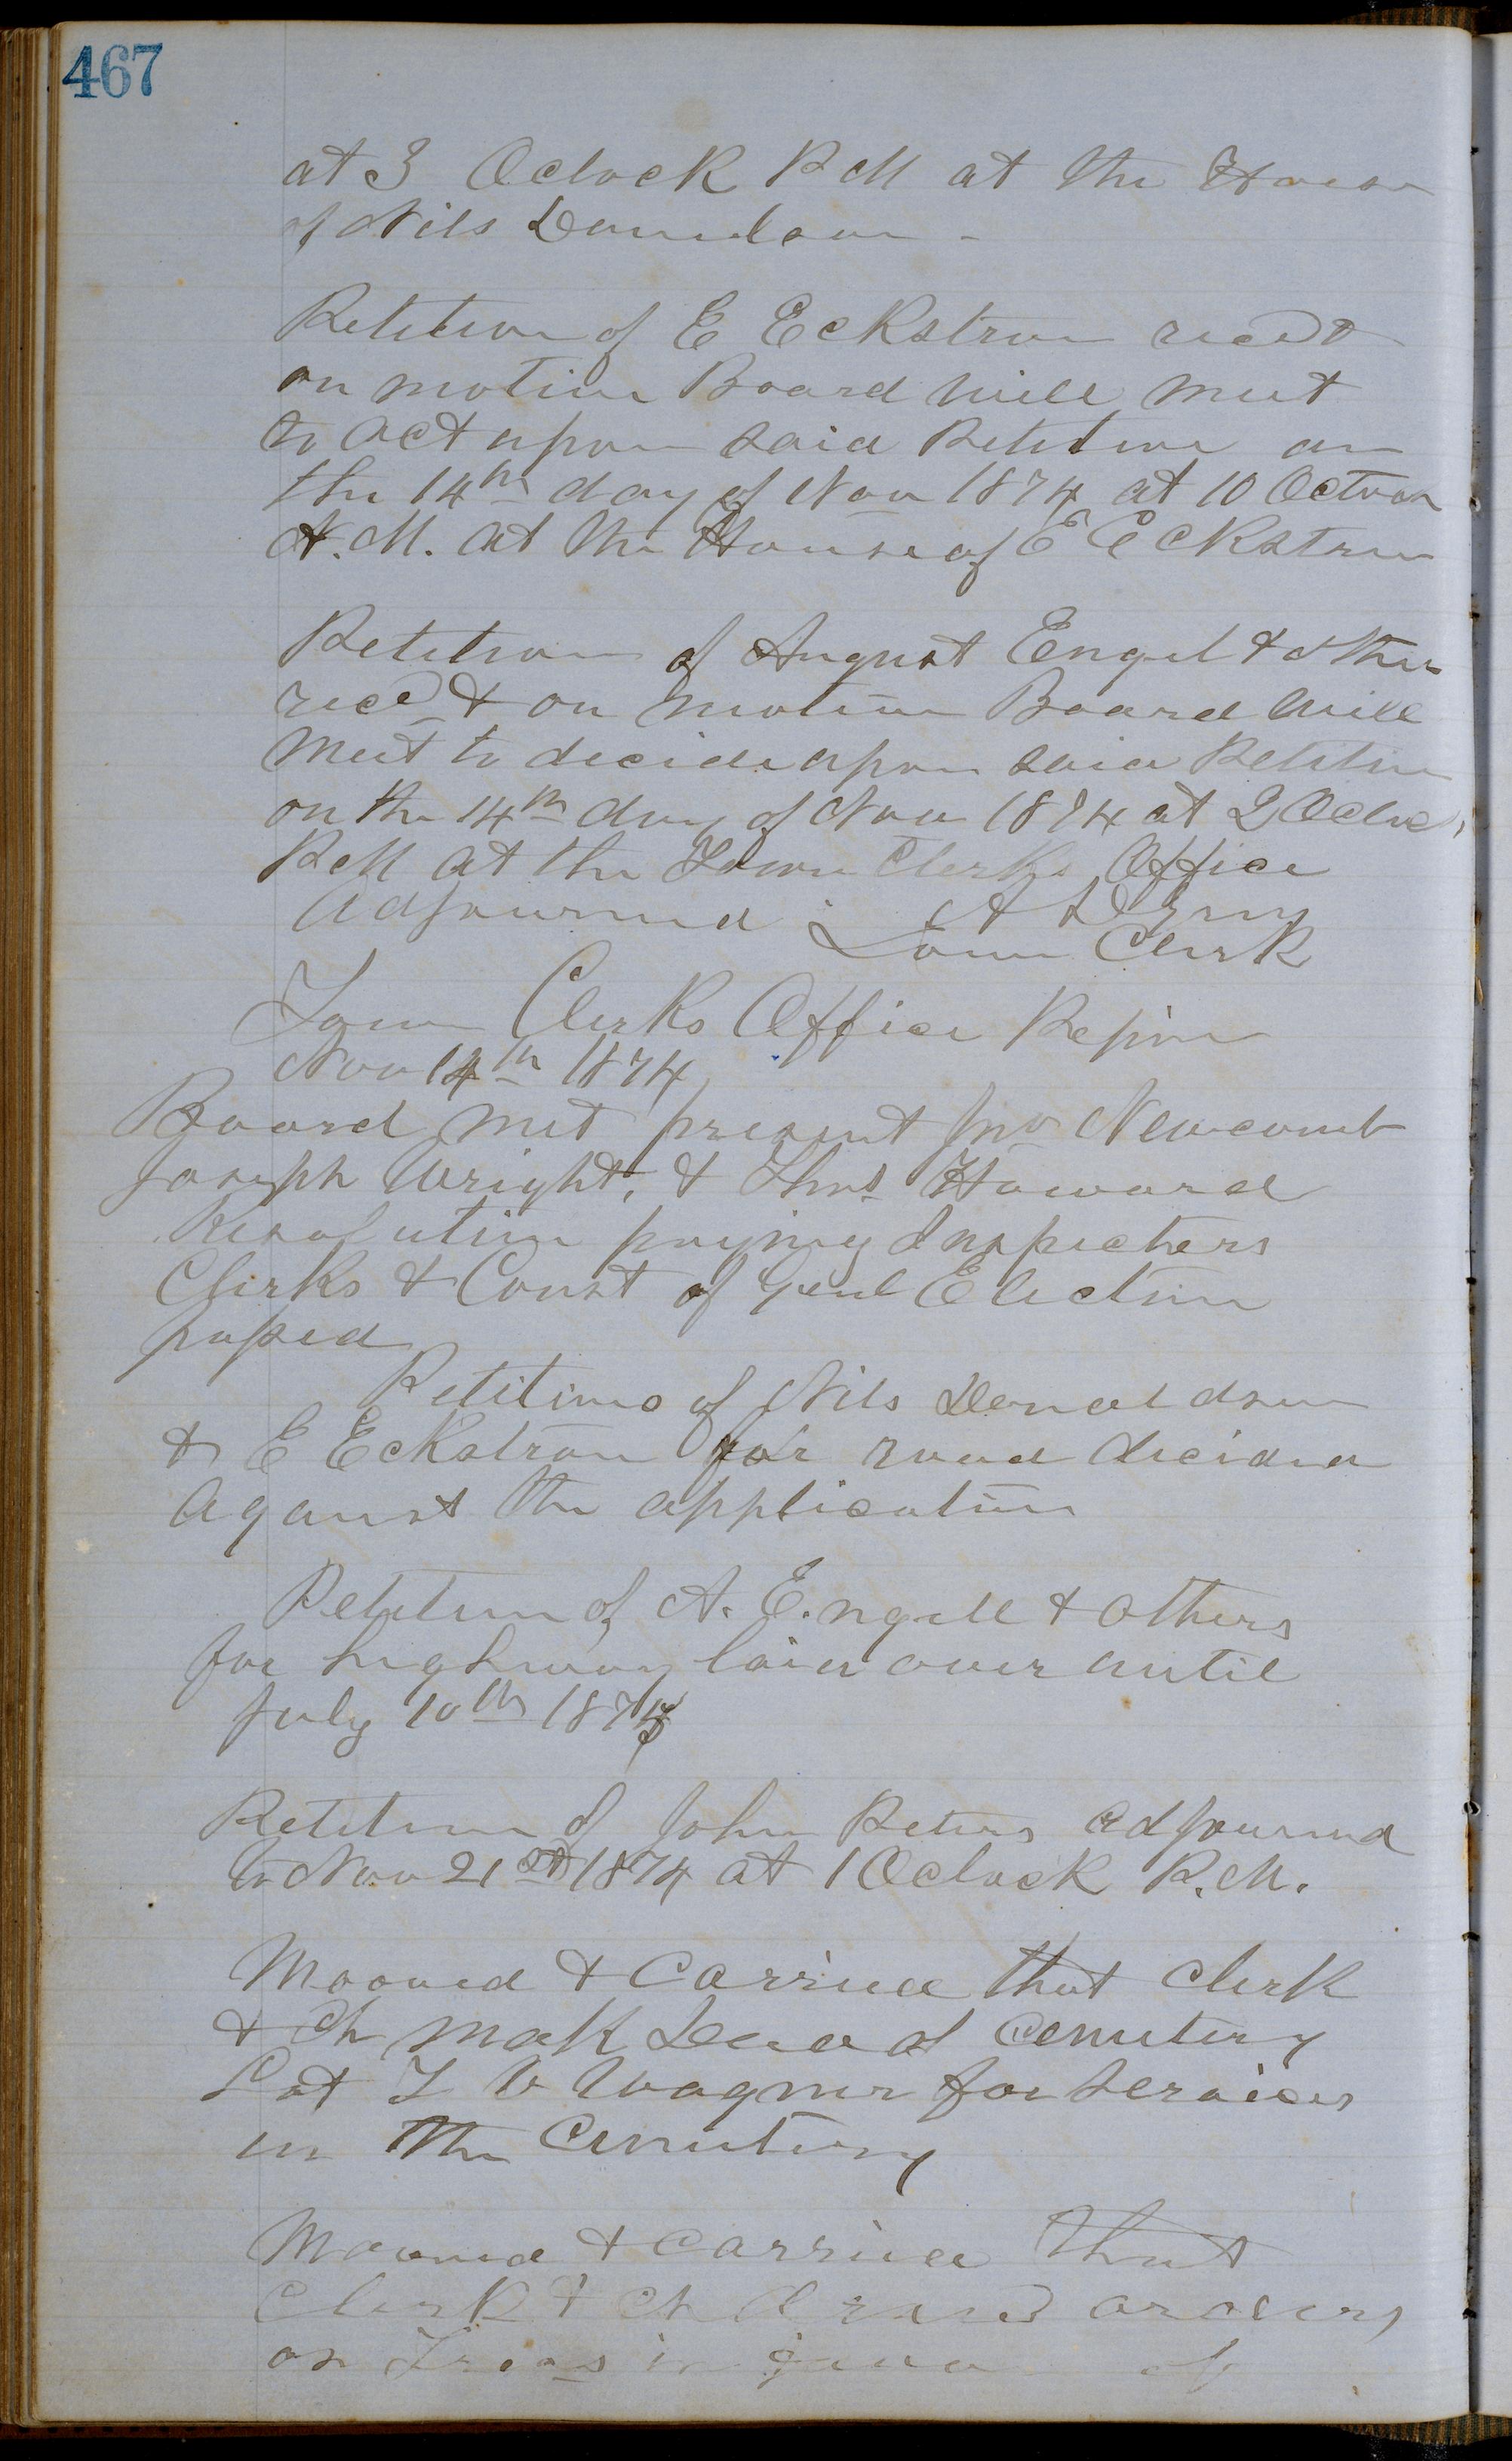 467
at 3 Oclock P M at the House
of Nils Donaldson -
Petition of E Eckstrom recd &
on motion Board will meet
to act upon said Petition on
the 14th day of Nov 1874 at 10 Oclock
A.M. at the House of E Eckstrom
Petition of August Engel & other
recd & on motion Board will
meet to decide upon said Petition
on the 14th day of Nov 1874 at 2 Oclock
P M at the Town Clerks Office
Adjourned A D Gray
Town Clerk
Town Clerks Office Pepin
Nov 14th 1874
Board met present Jno Newcomb
Joseph Wright, & Thos Howard
Resolution paying Inspecters
Clerks & Const of Genl Election
passed
Petitions of Nils Donaldson
& E Eckstrom for road decided
against the application
Petition of A. Engell & others
for highway laid over until
July 10th 1875
Petition of John Peters adjourned
to Nov 21st 1874 at 1 Oclock P.M.
Mooved & Carried that Clerk
& Ch mak Deed of Cemetery
Lot T V Wagner for Services
in the Cemetery
Mooved & carried that
Clerk & Ch draw orders
on Treas in favor of